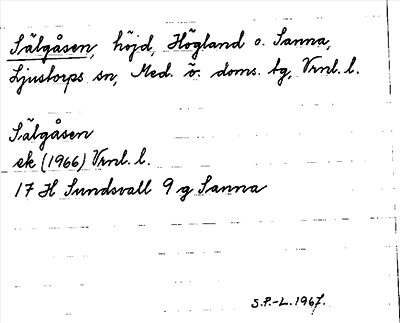 Sälgåsen, höjd, Högland o. Sanna,
Ljustorps sn, Med. ö. doms. tg, Vrnl. l.
Sälgåsen
ek (1966) Vrnl. l.
17 H Sundsvall 9 g Sanna
S.P.-L. 1967.